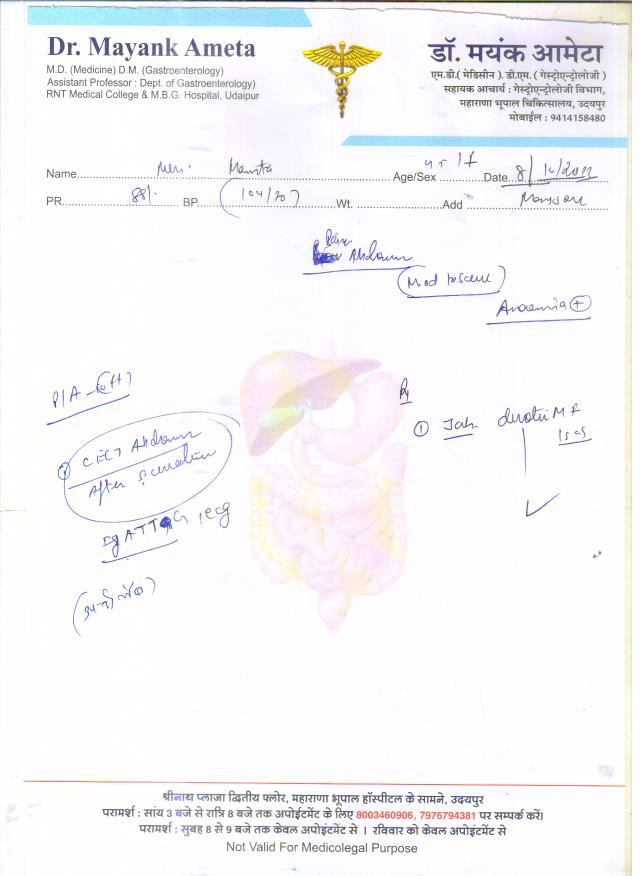 Dr. Mayank Ameta
M.D. (Medicine) D.M. (Gastroenterology)
Assistant Professor : Dept. of Gastroenterology)
RNT Medical College & M.B.G. Hospital, Udaipur
डॉ. मयंक आमेटा
एम.डी.( मेडिसीन ). डी.एम. ( गेस्ट्रोएन्ट्रोलोजी )
सहायक आचार्य : गेस्ट्रोएन्ट्रोलोजी विभाग,
महाराणा भूपाल चिकित्सालय, उदयपुर
मोबाईल : 9414158480
Name Mamta Age/Sex Date 8/10/2022
PR 88/. BP (104/70) Wt. Add
Abdomen
Anaemia +
P/A
Rx
① CECT Abdomen
After
① Tab MF
IgATTG
श्रीनाथ प्लाजा द्वितीय फ्लोर, महाराणा भूपाल हॉस्पीटल के सामने, उदयपुर
परामर्श : सांय 3 बजे से रात्रि 8 बजे तक अपोईटमेंट के लिए 8003460906, 7976794381 पर सम्पर्क करें।
परामर्श : सुबह 8 से 9 बजे तक केवल अपोइंटमेंट से । रविवार को केवल अपोइंटमेंट से
Not Valid For Medicolegal Purpose